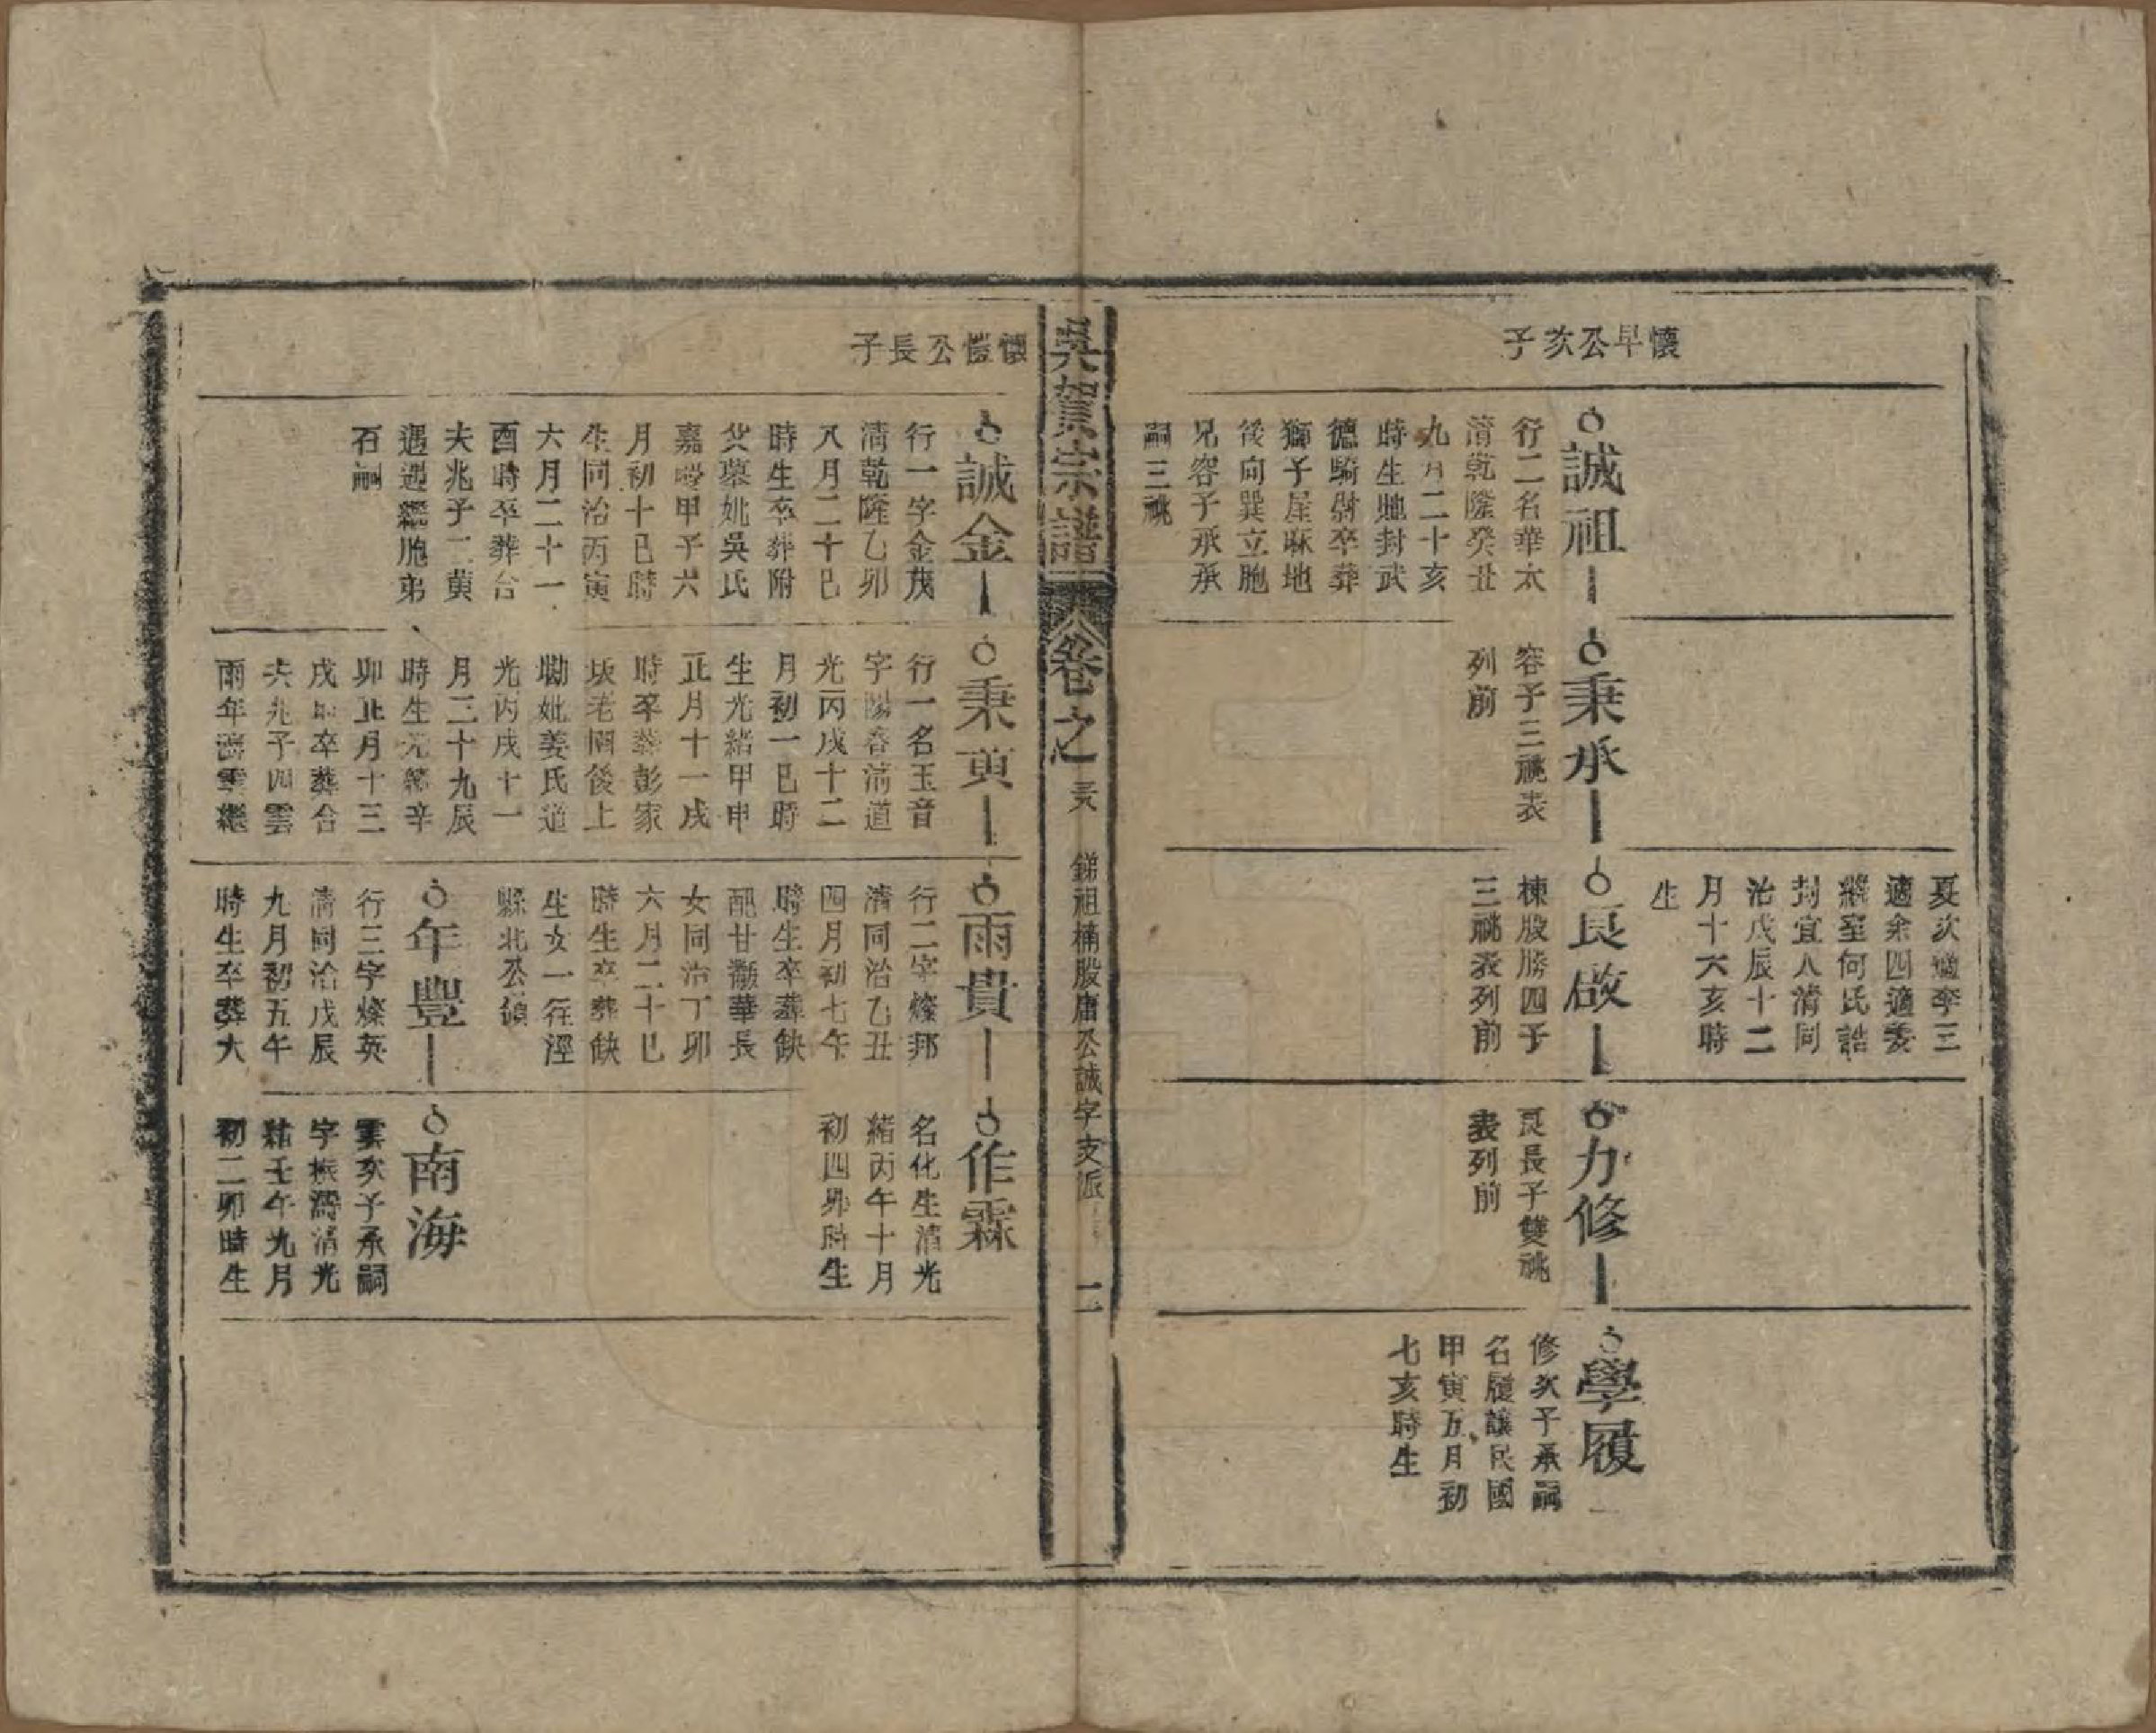 懷早公次子
誠祖
行二名華太
清乾隆癸丑
九月二十亥
時生貤封武
德騎尉卒葬
獅子屋麻地
後向巽立胞
兄容子承承
嗣三祧
秉承
容子三祧表
列前
夏次適李三
適余四適婁
繼室何氏誥
封宜人清同
治戊辰十二
月十六亥時
生
良啟
棟股勝四子
三祧表列前
力修
良長子雙祧
表列前
學履
修次子承嗣
名履謙民國
甲寅五月初
七亥時生
吳駕宗譜
卷之
銻祖楠股庸公誠字支派
二
懷愷公長子
誠金
行一字金茂
清乾隆乙卯
八月二十巳
時生卒葬附
父墓妣吳氏
嘉慶甲子六
月初十巳時
生同治丙寅
六月二十一
酉時卒葬合
夫兆子二萸
遇遇繼胞弟
石嗣
秉萸
行一名玉音
字陽春清道
光丙戌十二
月初一巳時
生光緒甲申
正月十一戌
時卒葬彭家
坂老園後上
㘭妣姜氏道
光丙戌十一
月二十九辰
時生光緒辛
卯正月十三
戌時卒葬合
夫兆子四雲
雨年濟雲繼
雨貴
行二字燦邦
清同治乙丑
四月初七午
時生卒葬缺
配甘灝華長
女同治丁卯
六月二十巳
時生卒葬缺
生女一往涇
縣北公領
作霖
名化生清光
緒丙午十月
初四卯時生
年豐
行三字燦英
清同治戊辰
九月初五午
時生卒葬大
南海
雲次子承嗣
字振濤清光
緒壬午九月
初二卯時生